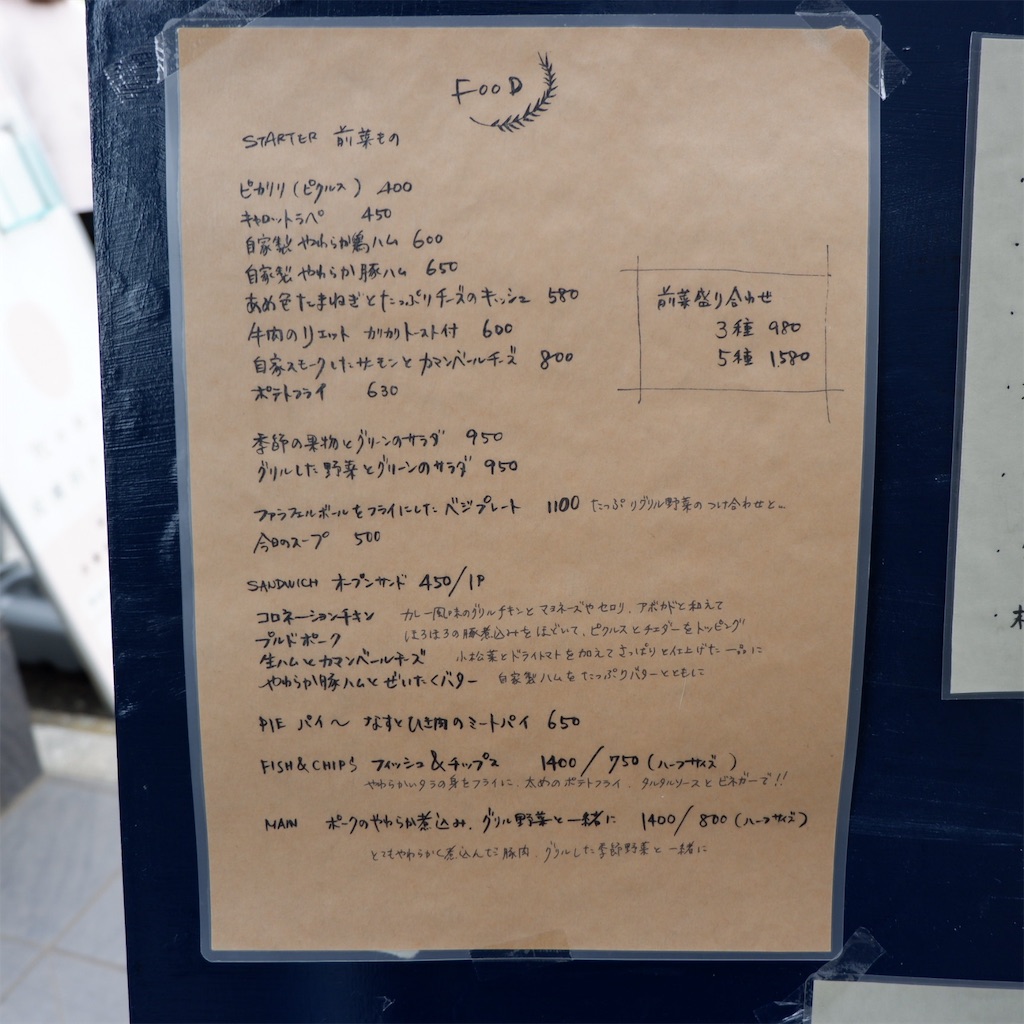 FOOD
STARTER 前菜もの
ピカリリ(ピクルス) 400
キャロットラペ 450
自家製やわらか鶏ハム 600
自家製やわらか豚ハム 650
あめ色たまねぎとたっぷりチーズのキッシュ 580
牛肉のリエット カリカリトースト付 600
自家スモークしたサーモンとカマンベールチーズ 800
ポテトフライ 630
前菜盛り合わせ
3種 980
5種 1,580
季節の果物とグリーンのサラダ 950
グリルした野菜とグリーンのサラダ 950
ファラフェルボールをフライにしたベジプレート 1100 たっぷりグリル野菜のつけ合わせと…
今日のスープ 500
SANDWICH オープンサンド 450/1P
コロネーションチキン カレー風味のグリルチキンとマヨネーズやセロリ、アボカドと和えて
プルドポーク ほろほろの豚煮込みをほどいて、ピクルスとチェダーをトッピング
生ハムとカマンベールチーズ 小松菜とドライトマトを加えてさっぱりと仕上げた一品に
やわらか豚ハムとぜいたくバター 自家製ハムをたっぷりバターとともに
PIE パイ〜 なすとひき肉のミートパイ 650
FISH & CHIPS フィッシュ&チップス 1400/750(ハーフサイズ)
やわらかいタラの身をフライに、太めのポテトフライ、タルタルソースとビネガーで!!
MAIN ポークのやわらか煮込み、グリル野菜と一緒に 1400/800(ハーフサイズ)
とてもやわらかく煮込んだ豚肉、グリルした季節野菜と一緒に